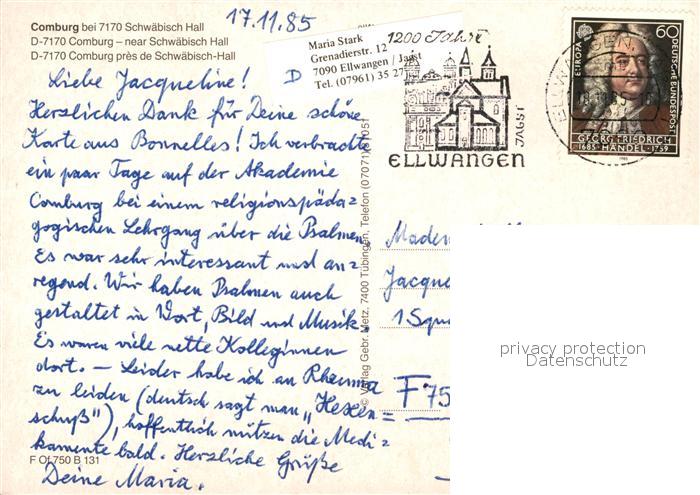 Comburg bei 7170 Schwäbisch Hall
D-7170 Comburg – near Schwäbisch Hall
D-7170 Comburg près de Schwäbisch-Hall
17.11.85
Maria Stark
Grenadierstr. 12
7090 Ellwangen / Jagst
Tel. (07961) 35 27
D
1200 Jahre
ELLWANGEN
JAGST
ELLWANGEN
EUROPA
60
DEUTSCHE BUNDESPOST
GEORG FRIEDRICH
1685 HÄNDEL 1759
1985
Liebe Jacqueline!
Herzlichen Dank für Deine schöne
Karte aus Bonnelles! Ich verbrachte
ein paar Tage auf der Akademie
Comburg bei einem religionspäda=
gogischen Lehrgang über die Psalmen.
Es war sehr interessant und an=
regend. Wir haben Psalmen auch
gestaltet in Wort, Bild und Musik.
Es waren viele nette Kolleginnen
dort. – Leider habe ich an Rheuma
zu leiden (deutsch sagt man „Hexen=
schuß"), hoffentlich nützen die Medi=
kamente bald. Herzliche Grüße
Deine Maria.
F Of 750 B 131
© Verlag Gebr. Metz, 7400 Tübingen, Telefon (07071)
Madem
Jacque
1 Squ
F 75
privacy protection
Datenschutz